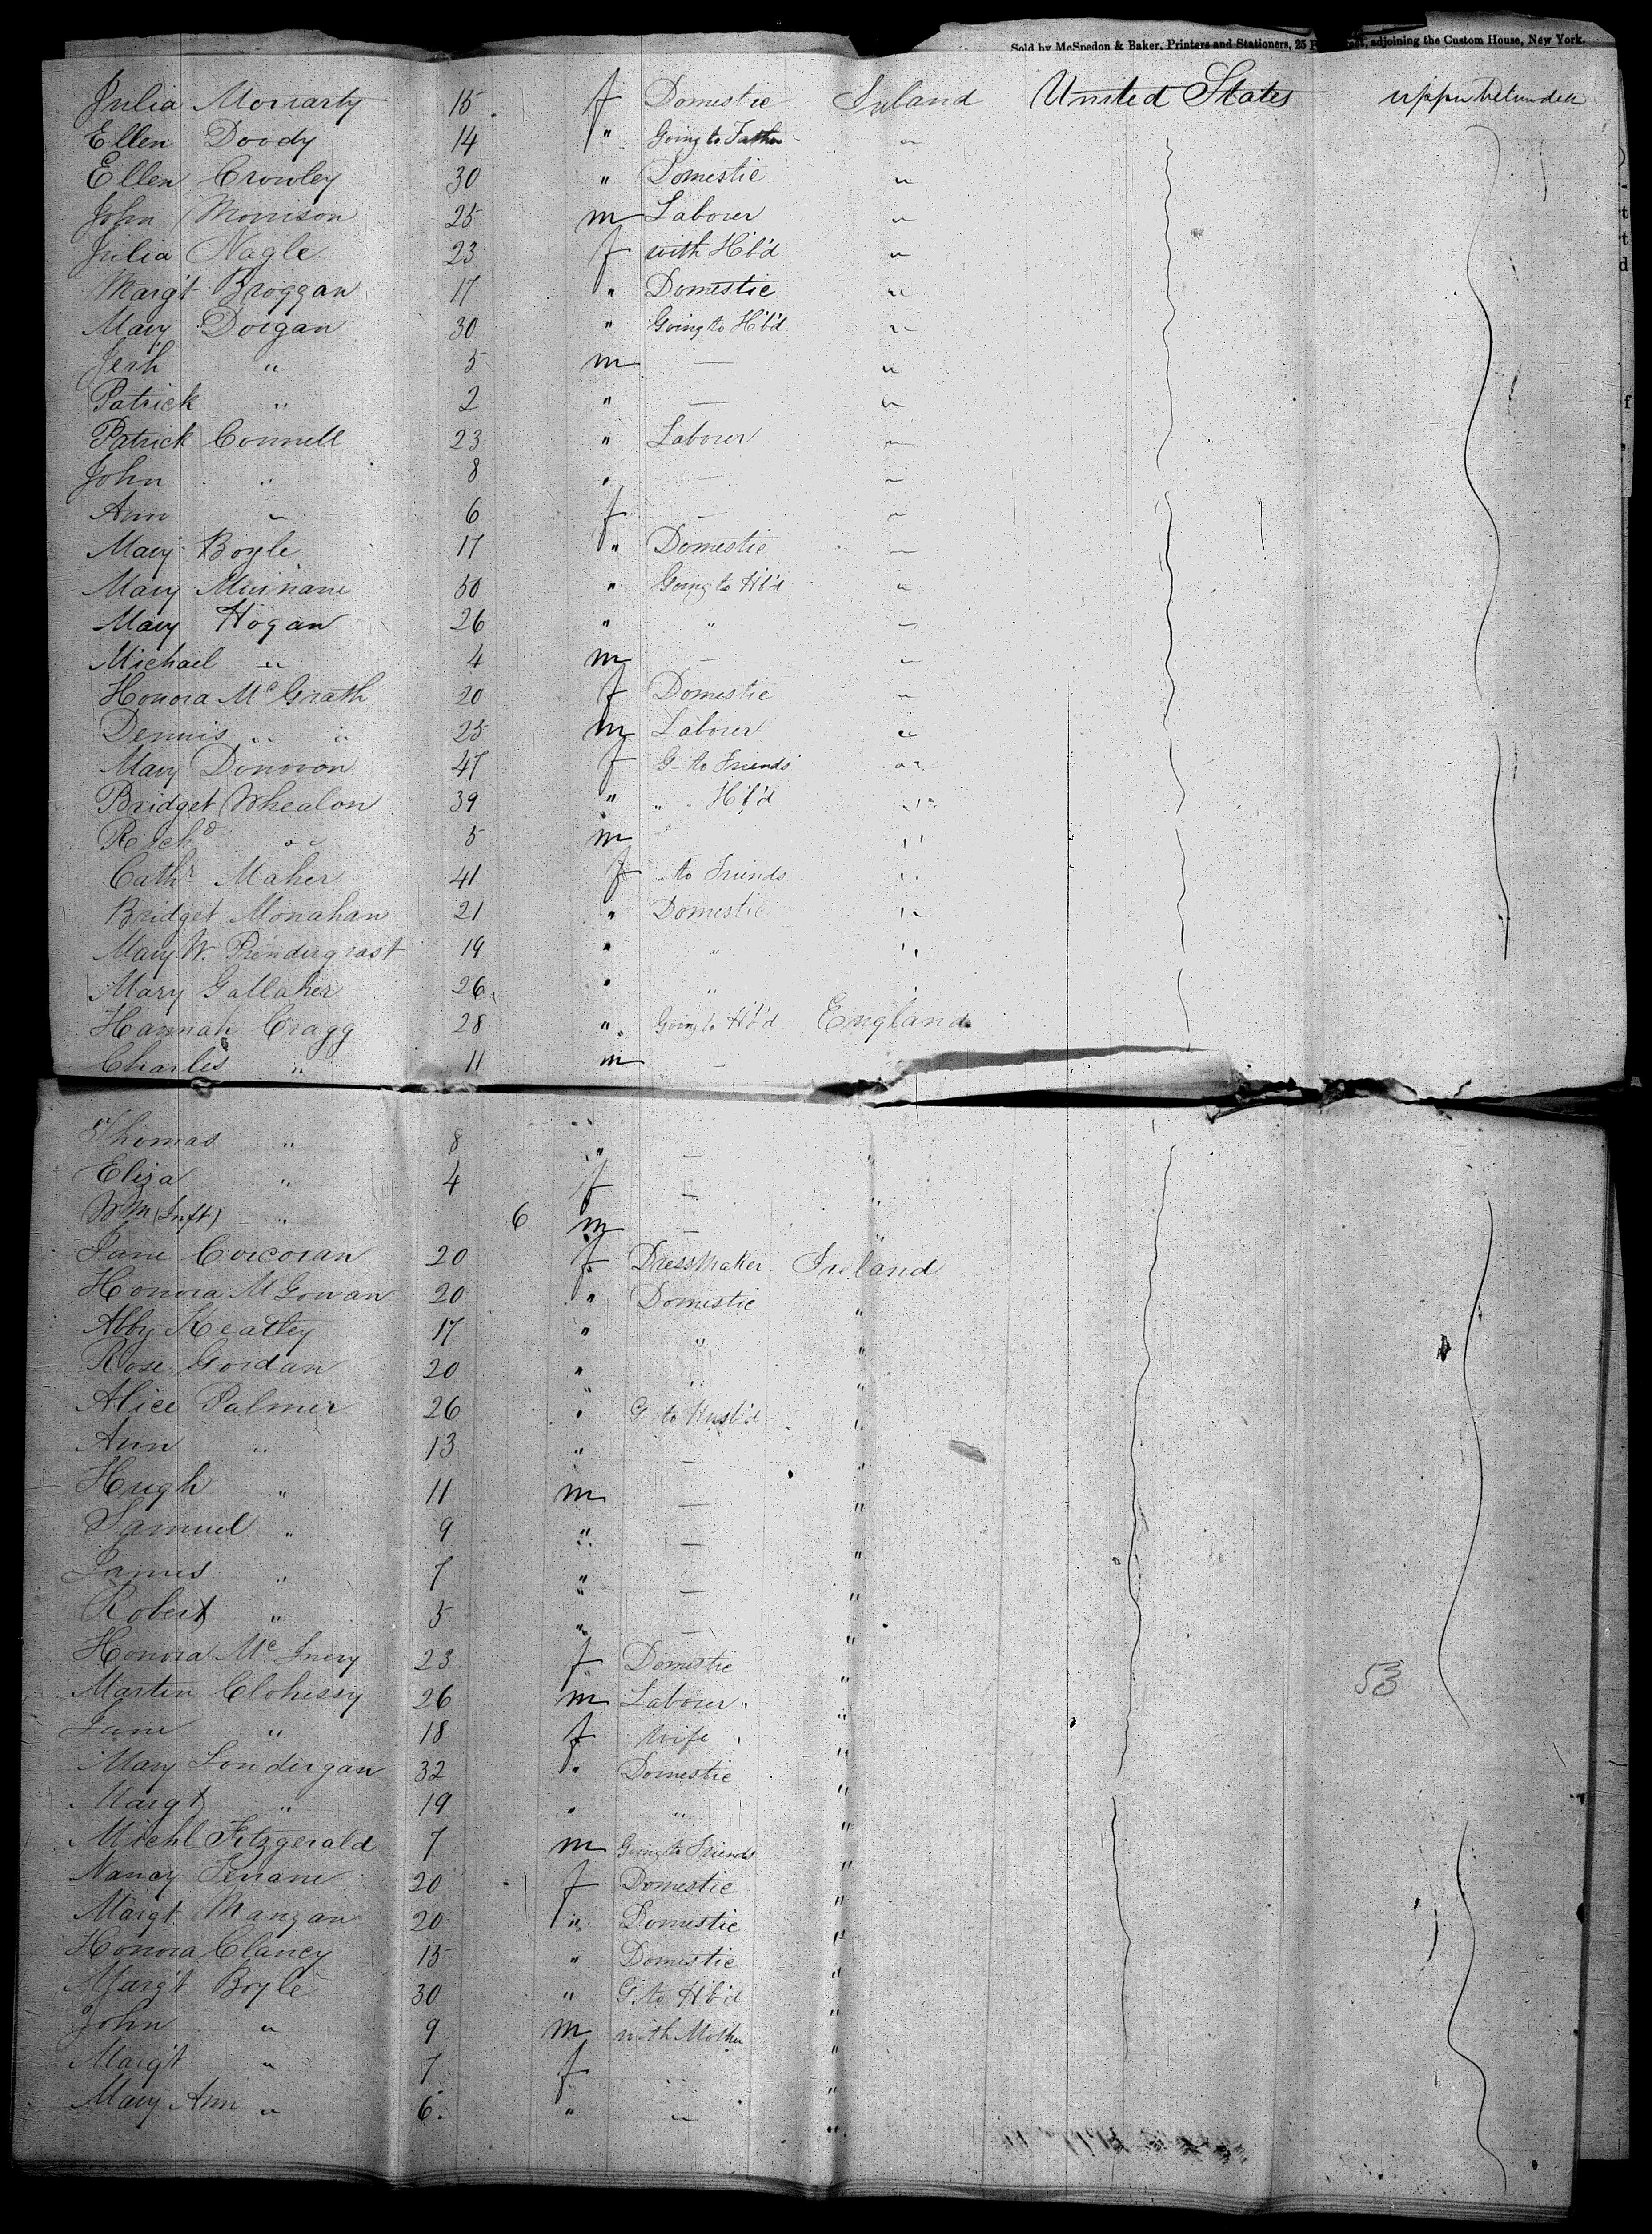 Sold by McSpedon & Baker, Printers and Stationers, 25 adjoining the Custom House, New York.
Julia Moriarty 15 f Domestic Ireland United States upper between deck
Ellen Doody 14 " Going to Father "
Ellen Crowley 30 " Domestic "
John Morrison 25 m Laborer "
Julia Nagle 23 f with H'b'd "
Marg't Broggan 17 " Domestic "
Mary Dorgan 30 " Going to H'b'd "
Jerh " 5 m — "
Patrick " 2 " — "
Patrick Connell 23 " Laborer "
John " 8 " — "
Ann " 6 f — "
Mary Boyle 17 " Domestic "
Mary Muinane 50 " Going to H'b'd "
Mary Hogan 26 " " "
Michael " 4 m — "
Honora Mc Grath 20 f Domestic "
Dennis " " 25 m Laborer "
Mary Donovon 47 f G- to Friends "
Bridget Whealon 39 " " H'b'd "
Richd " 5 m "
Cathr Maher 41 f " to Friends "
Bridget Monahan 21 " Domestic "
Mary W. Prendergrast 19 " " "
Mary Gallaher 26 " " "
Hannah Cragg 28 " Going to H'b'd England
Charles " 11 m —
Thomas " 8 " — "
Eliza " 4 f — "
Wm (Inft) " 6 m — "
Jane Corcoran 20 f DressMaker Ireland
Honora McGowan 20 " Domestic "
Abby Keatley 17 " " "
Rose Gordan 20 " " "
Alice Palmer 26 " G to Husb'd "
Ann " 13 " — "
Hugh " 11 m — "
Samuel " 9 " — "
James " 7 " — "
Robert " 5 " — "
Honora Mc Inery 23 f Domestic "
Martin Clohessy 26 m Laborer " 53
Jane " 18 f Wife "
Mary Londergan 32 " Domestic "
Margt " 19 " " "
Michl Fitzgerald 7 m Going to Friends "
Nancy 20 f Domestic "
Margt. Mangan 20 " Domestic "
Honora Clancy 15 " Domestic "
Marg't Boyle 30 " G. to H'b'd "
John " 9 m with Mother "
Marg't " 7 f " "
Mary Ann " 6 " " "